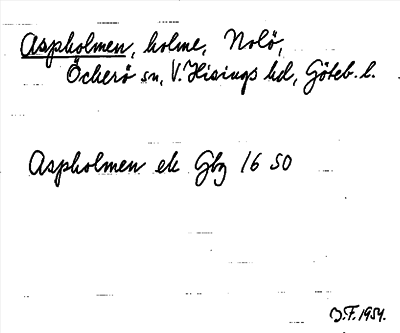 Aspholmen, holme, Nolö,
Öckerö sn, V. Hisings hd, Göteb. l.
Aspholmen ek Gbg 16 SO
1954.